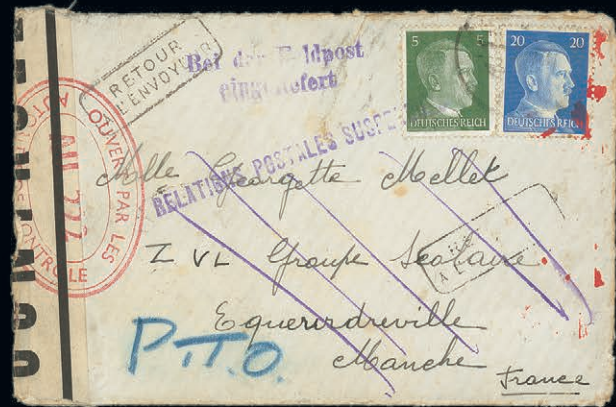 RETOUR
L'ENVOYEUR
Bei der Feldpost
eingeliefert
5 5
DEUTSCHES REICH
20 20
DEUTSCHES REICH
RELATIONS POSTALES SUSPE
OUVERT PAR LES
CONTROLE
Mlle Georgette Mellet
Z VL Groupe Scolaire
Equeurdreville
Manche
France
P.T.O.